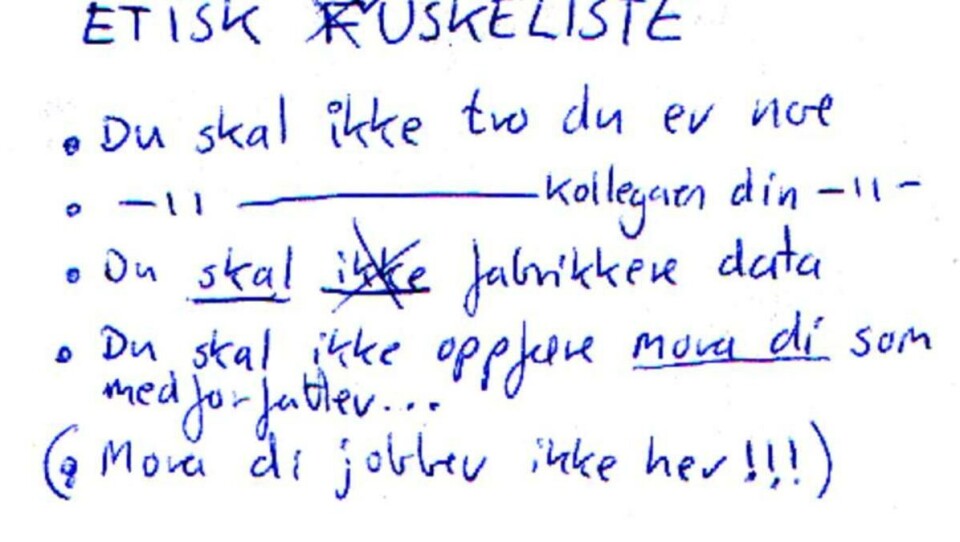 ETISK HUSKELISTE
• Du skal ikke tro du er noe
• —11 ———— kollegaen din —11—
• Du skal ikke fabrikkere data
• Du skal ikke oppføre mora di som
medforfatter...
(• Mora di jobber ikke her!!!)